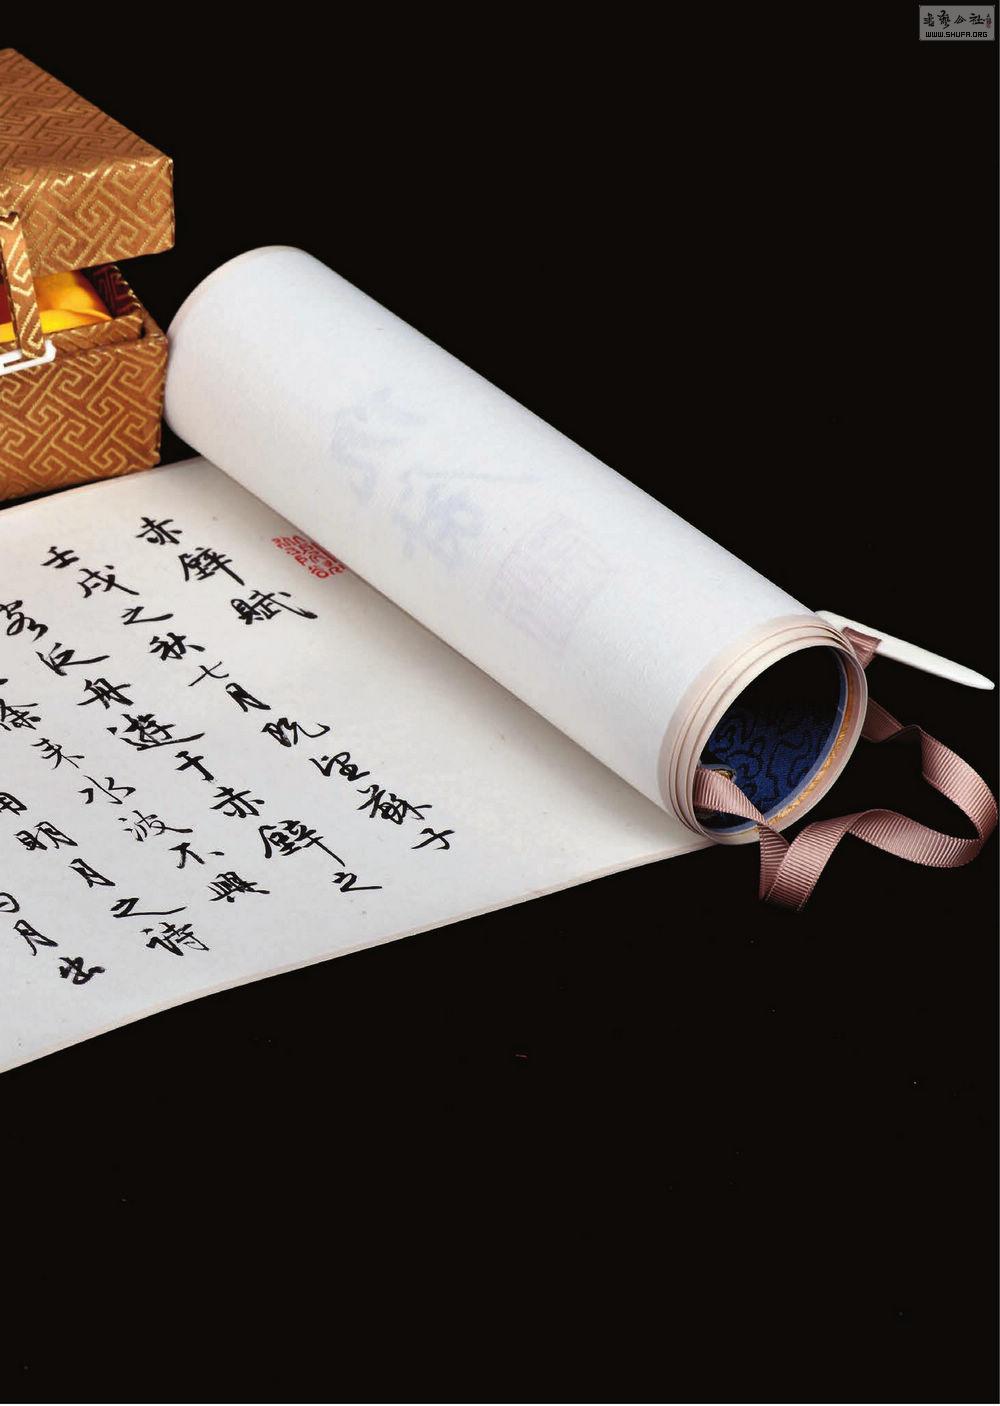 赤壁賦
壬戌之秋七月既望蘇子
客泛舟遊于赤壁之
徐來水波不興
明月之詩
月出
書藝公社
WWW.SHUFA.ORG